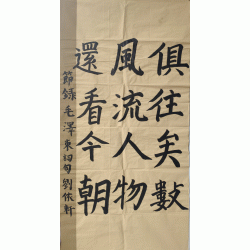 俱往矣數
風流人物
還看今朝
節錄毛澤東詞句劉依新